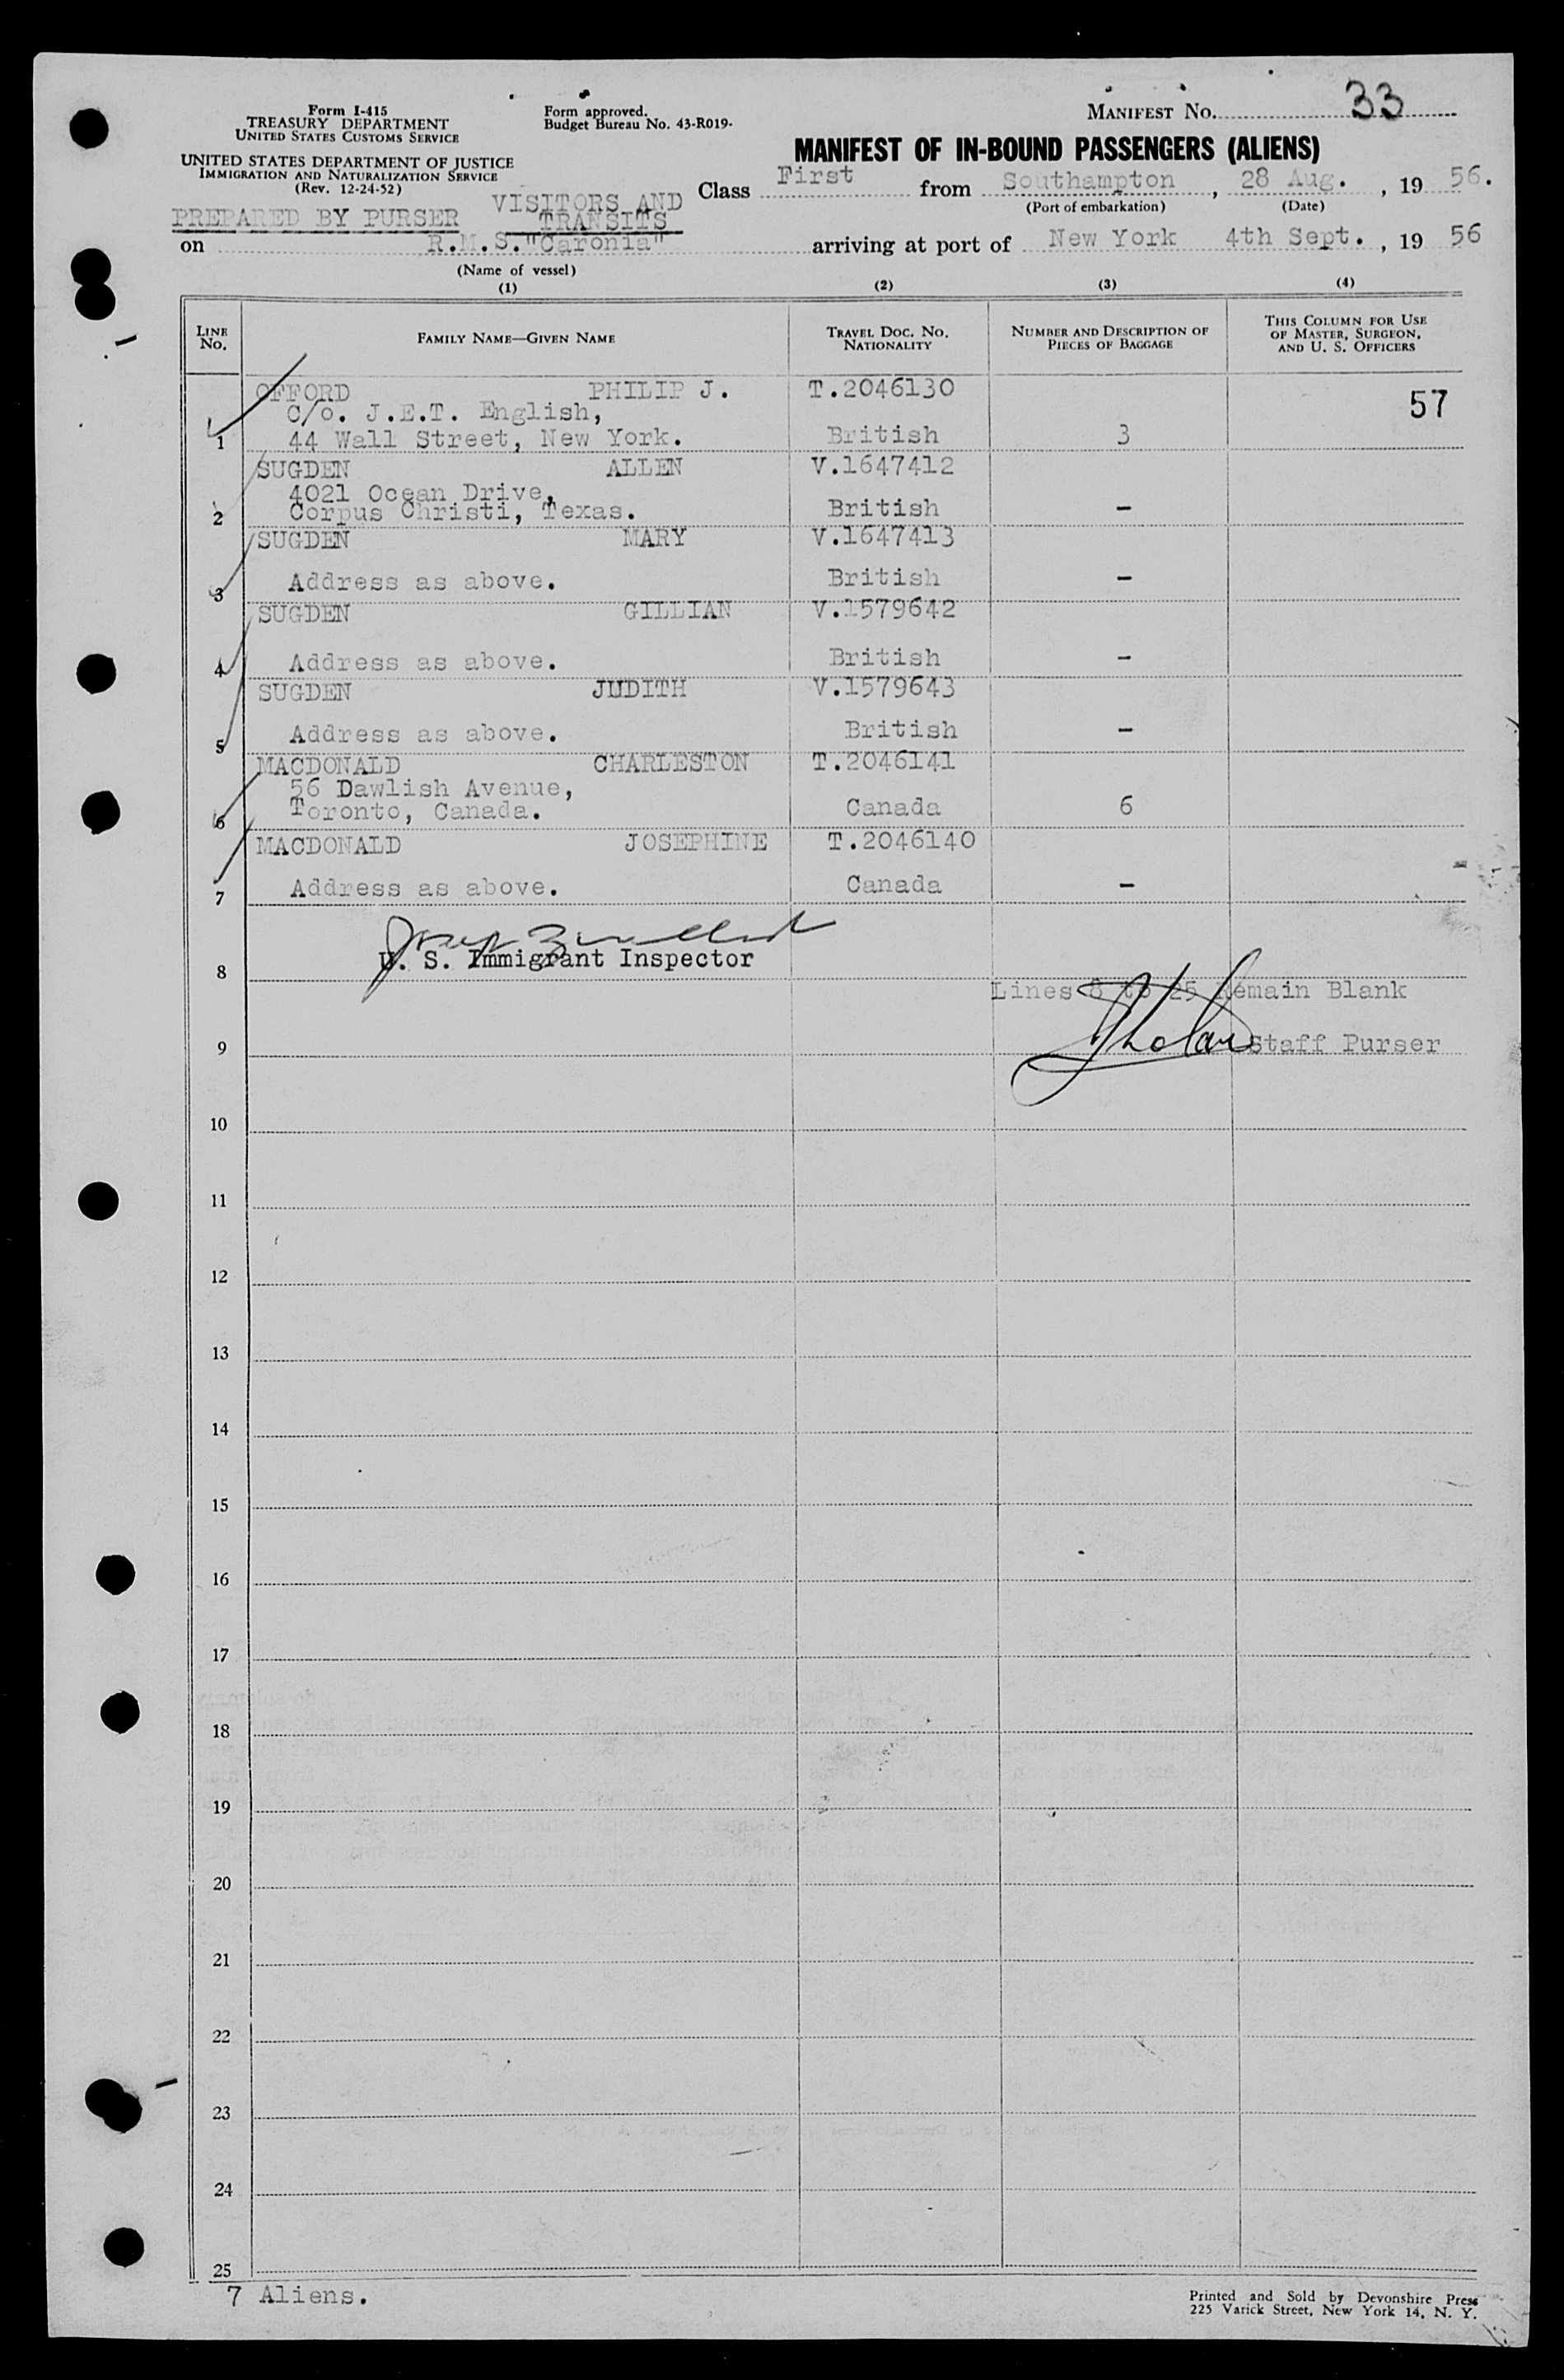 Form I-415
TREASURY DEPARTMENT
UNITED STATES CUSTOMS SERVICE
UNITED STATES DEPARTMENT OF JUSTICE
IMMIGRATION AND NATURALIZATION SERVICE
(Rev. 12-24-52)
Form approved.
Budget Bureau No. 43-R019.
MANIFEST No. 33
MANIFEST OF IN-BOUND PASSENGERS (ALIENS)
VISITORS AND
TRANSITS
PREPARED BY PURSER
Class First from Southampton, 28 Aug., 19 56.
(Port of embarkation) (Date)
on R.M.S."Caronia" arriving at port of New York 4th Sept., 19 56
(Name of vessel)
(1) (2) (3) (4)
LINE No. FAMILY NAME—GIVEN NAME TRAVEL DOC. NO. NATIONALITY NUMBER AND DESCRIPTION OF PIECES OF BAGGAGE THIS COLUMN FOR USE OF MASTER, SURGEON, AND U. S. OFFICERS
OFFORD PHILIP J. T.2046130
C/o. J.E.T. English, 57
1 44 Wall Street, New York. British 3
SUGDEN ALLEN V.1647412
4021 Ocean Drive,
2 Corpus Christi, Texas. British -
SUGDEN MARY V.1647413
3 Address as above. British -
SUGDEN GILLIAN V.1579642
4 Address as above. British -
SUGDEN JUDITH V.1579643
5 Address as above. British -
MACDONALD CHARLESTON T.2046141
56 Dawlish Avenue,
6 Toronto, Canada. Canada 6
MACDONALD JOSEPHINE T.2046140
7 Address as above. Canada -
U. S. Immigrant Inspector
8
Lines 8 to 25 Remain Blank
9 Staff Purser
10
11
12
13
14
15
16
17
18
19
20
21
22
23
24
25
7 Aliens.
Printed and Sold by Devonshire Press
225 Varick Street, New York 14, N. Y.